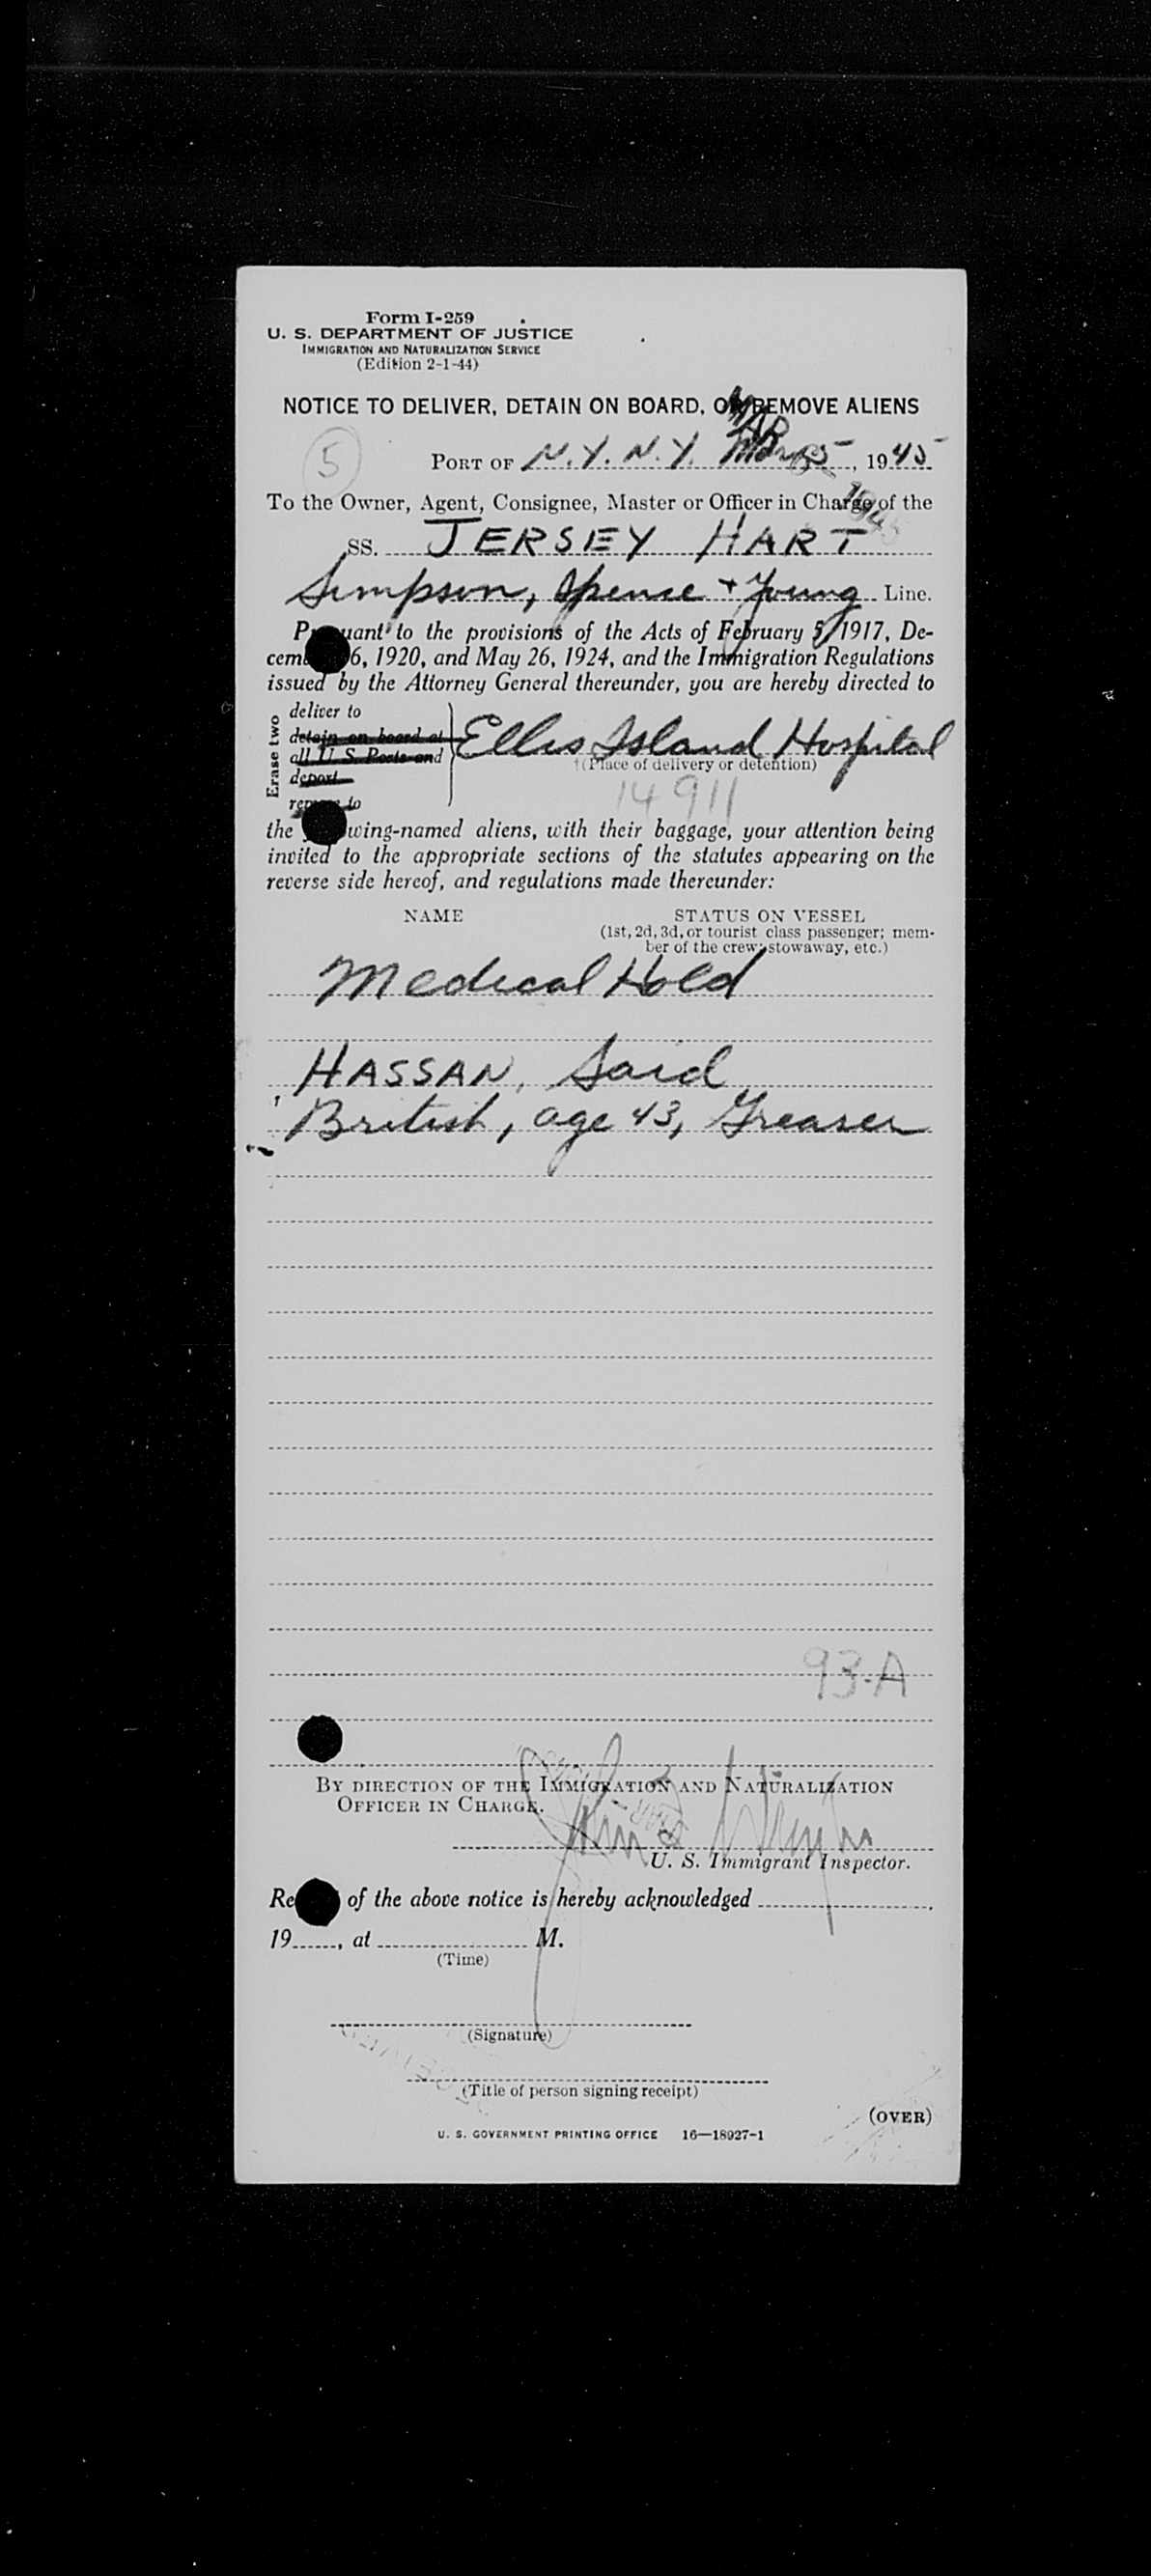 Form I-259
U. S. DEPARTMENT OF JUSTICE
IMMIGRATION AND NATURALIZATION SERVICE
(Edition 2-1-44)
NOTICE TO DELIVER, DETAIN ON BOARD, OR REMOVE ALIENS
5
PORT OF N.Y. N.Y. Mar 5, 1945
To the Owner, Agent, Consignee, Master or Officer in Charge of the
SS. JERSEY HART
Simpson, Spence + Young Line.
Pursuant to the provisions of the Acts of February 5, 1917, De-
cember 26, 1920, and May 26, 1924, and the Immigration Regulations
issued by the Attorney General thereunder, you are hereby directed to
Erase two
deliver to
detain on board at
all U. S. Ports and
deport
remove to
Ellis Island Hospital
(Place of delivery or detention)
14911
the following-named aliens, with their baggage, your attention being
invited to the appropriate sections of the statutes appearing on the
reverse side hereof, and regulations made thereunder:
NAME STATUS ON VESSEL
(1st, 2d, 3d, or tourist class passenger; mem-
ber of the crew; stowaway, etc.)
Medical Hold
HASSAN, Said
British, age 43, Greaser
93-A
BY DIRECTION OF THE IMMIGRATION AND NATURALIZATION
OFFICER IN CHARGE.
U. S. Immigrant Inspector.
Receipt of the above notice is hereby acknowledged
19, at M.
(Time)
(Signature)
(Title of person signing receipt)
(OVER)
U. S. GOVERNMENT PRINTING OFFICE 16—18927-1